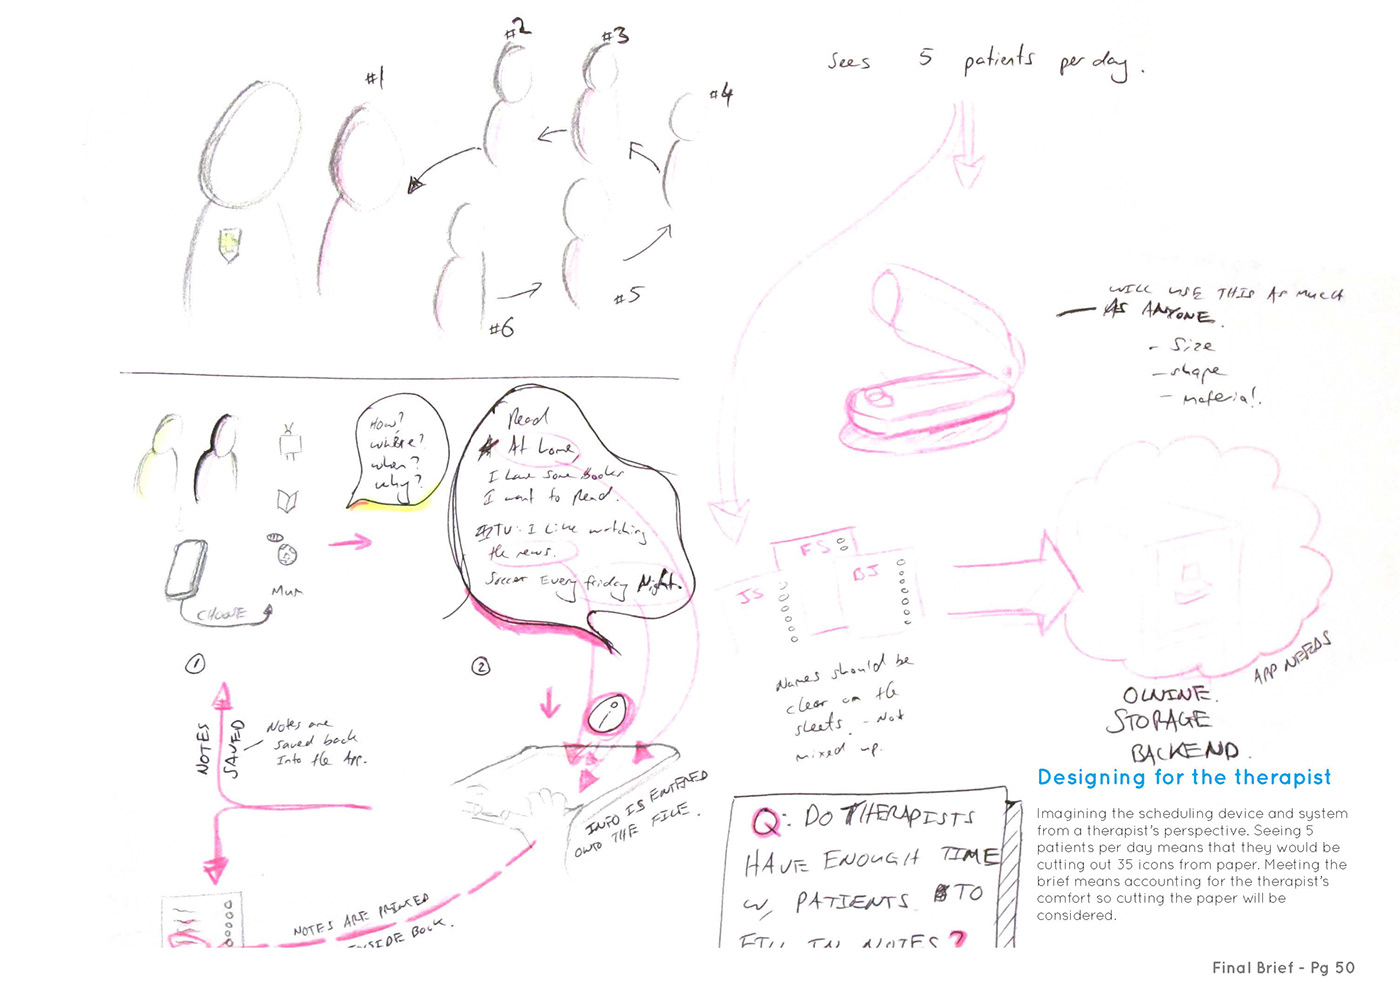 #1
#2
#3
#4
#5
#6
sees 5 patients per day.
WILL USE THIS AS MUCH
AS ANYONE.
- Size
- shape
- Material.
How?
where?
when?
why?
Read
At home,
I have some Books
I want to Read.
TV: I Like watching
the news.
Soccer Every friday Night.
Mum
CHOOSE
1
2
NOTES
SAVED
Notes are
saved back
Into the App.
i
INFO IS ENTERED
ONTO THE FILE.
NOTES ARE PRINTED
INSIDE BOOK.
FS
JS
BJ
Names should be
clear on the
sheets - Not
mixed up.
APP NEEDS
ONLINE
STORAGE
BACKEND.
Q: DO THERAPISTS
HAVE ENOUGH TIME
W/ PATIENTS TO
FILL IN NOTES?
Designing for the therapist
Imagining the scheduling device and system
from a therapist's perspective. Seeing 5
patients per day means that they would be
cutting out 35 icons from paper. Meeting the
brief means accounting for the therapist's
comfort so cutting the paper will be
considered.
Final Brief - Pg 50